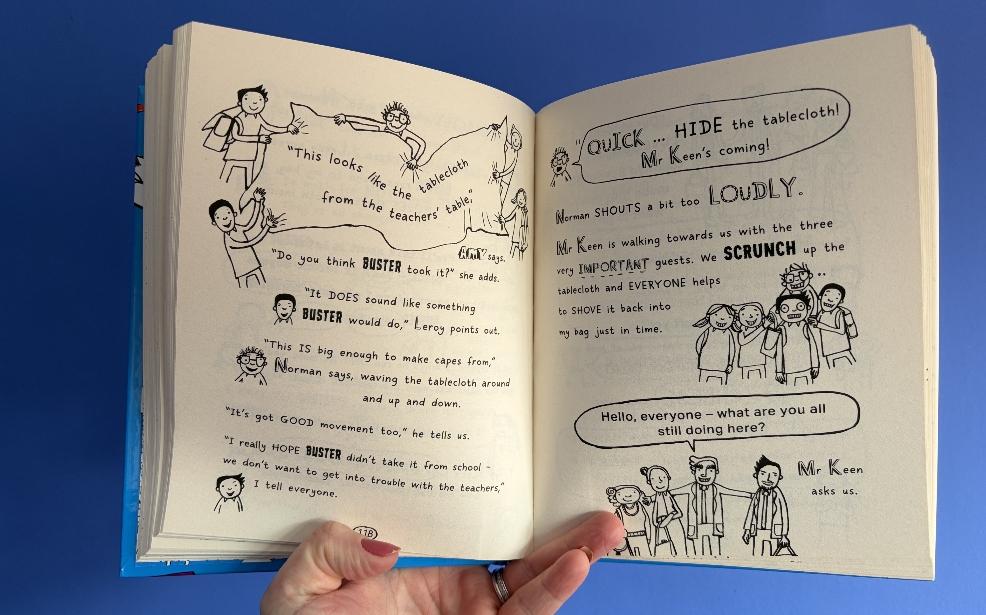 "This looks like the tablecloth
from the teachers' table,"
AMY says.
"Do you think BUSTER took it?" she adds.
"It DOES sound like something
BUSTER would do," Leroy points out.
"This IS big enough to make capes from,"
Norman says, waving the tablecloth around
and up and down.
"It's got GOOD movement too," he tells us.
"I really HOPE BUSTER didn't take it from school –
we don't want to get into trouble with the teachers,"
I tell everyone.
118
QUICK ... HIDE the tablecloth!
Mr Keen's coming!
Norman SHOUTS a bit too LOUDLY.
Mr Keen is walking towards us with the three
very IMPORTANT guests. We SCRUNCH up the
tablecloth and EVERYONE helps
to SHOVE it back into
my bag just in time.
Hello, everyone – what are you all
still doing here?
Mr Keen
asks us.